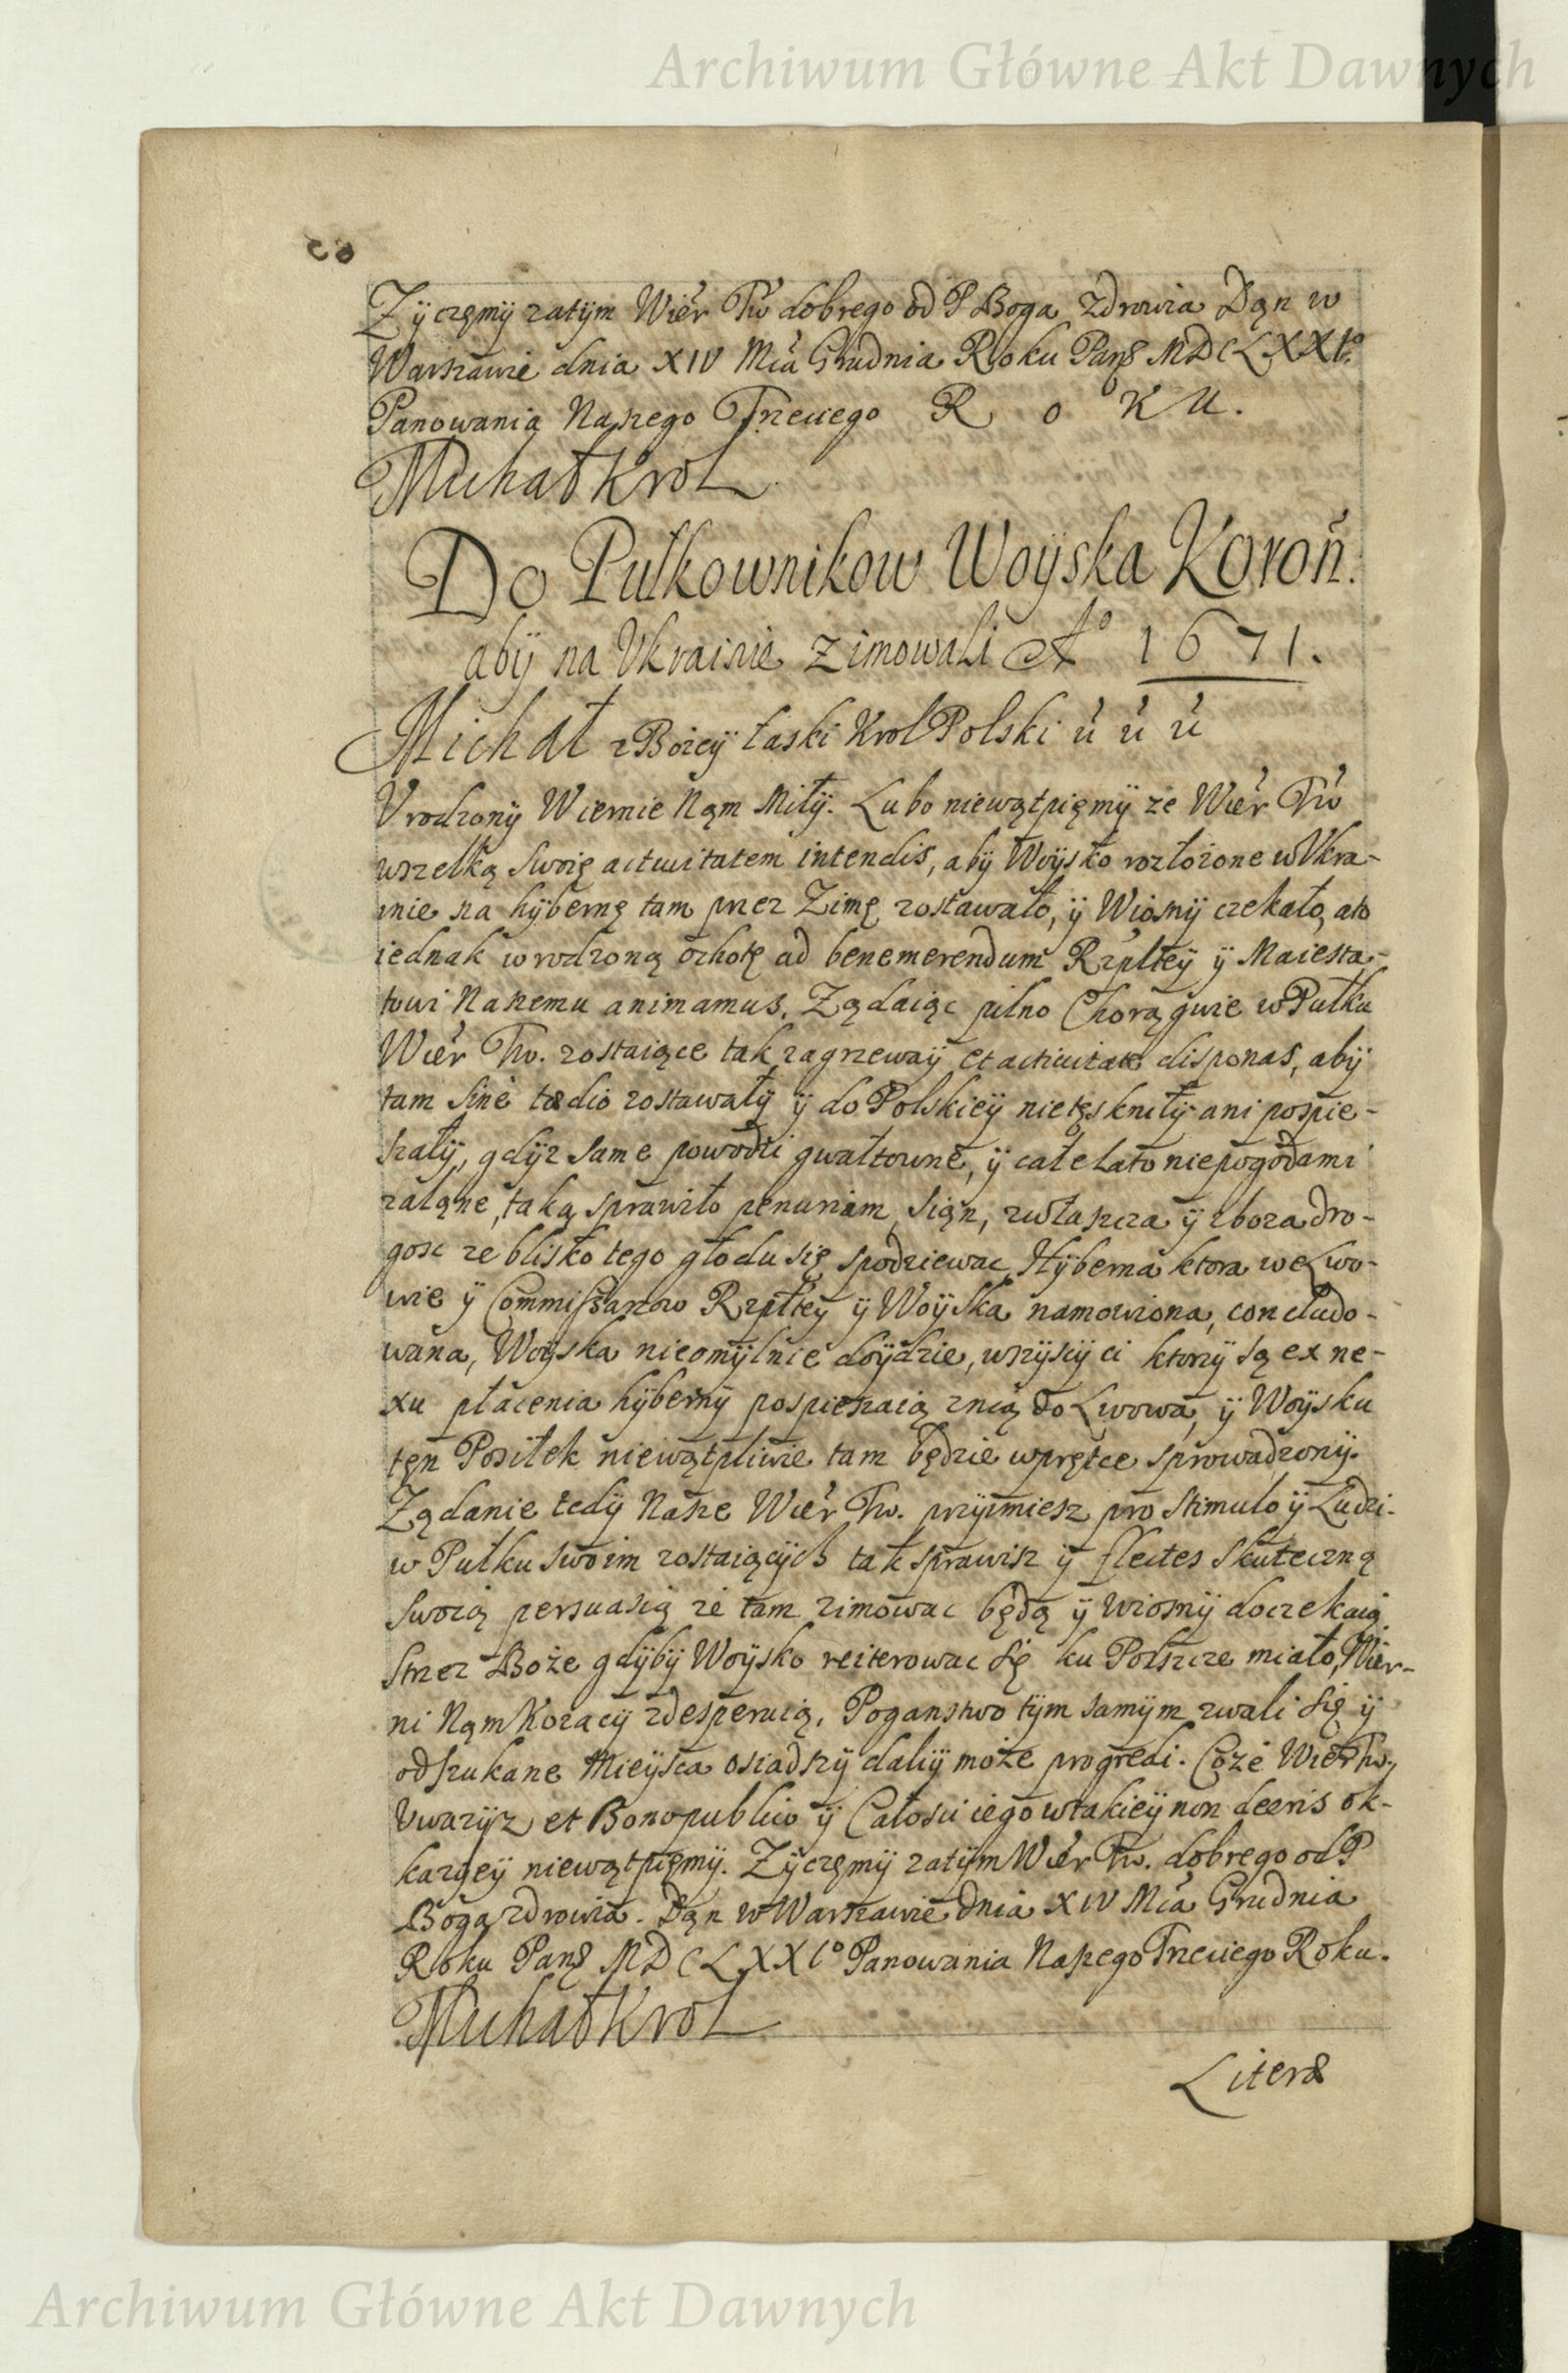 Archiwum Główne Akt Dawnych
Zÿczęmÿ zatÿm Wiér Tẃ dobrego od P Boga zdrowia Dąn w
Warszawie dnia XIV Mca Grudnia Roku Pans MDCLXXIº
Panowania Naszego Trzeciego R o K U.
Michał Krol
Do Pułkownikow Woÿska Koroń.
abÿ na Vkrainie zimowali Aº 1671.
Michał z Bozeÿ łaski Krol Polski ú ú ú
Vrodzonÿ Wiernie Nąm Miłÿ. Lubo niewątpięmÿ ze Wiér Tẃ
wszelką swoię activitatem intendis, abÿ Woÿsko rozłozone w Vkra-
inie na hÿbernę tam przez Zimę zostawało, ÿ Wiosnÿ czekało, ato
iednak wrodzoną ochotę ad benemerendum Rzplteÿ ÿ Maiesta-
towi Naszemu animamus. Ządaiąc pilno Chorągwie w Pułku
Wiér Tw. zostaiące tak zagrzewaÿ et activitate disponas, abÿ
tam sine tædio zostawałÿ ÿ do Polskieÿ nietęskniłÿ ani pospie-
szałÿ, gdÿz same powodzi gwałtowne, ÿ całe lato niepogodami
zalane, taką sprawiło penuriam siąn, zwłaszcza ÿ zboza dro-
gosc ze blisko tego głodu się spodziewac, Hÿberna ktora we Lwo-
wie ÿ Commissarzow Rzpłteÿ ÿ Woÿska namowiona, concludo-
wana, Woÿska nieomÿlnie doÿdzie, wszÿscÿ ci ktorzÿ są ex ne-
xu płacenia hÿbernÿ pospieszaią znią do Lwowa, ÿ Woÿsku
tęn Posiłek niewątpliwie tam będzie wprętce sprowadzonÿ.
Ządanie tedÿ Nasze Wiér Tw. przÿimiesz pro stimulo ÿ Ludzi-
w Pułku swoim zostaiącÿch tak sprawisz ÿ flectes skuteczną
swoią persuasią ze tam zimowac będą ÿ wiosnÿ doczekaią
Strzez Boże gdÿbÿ Woÿsko reiterowac się ku Polszcze miało, Wier-
ni Nąm Kozacÿ zdesperuią, Poganstwo tÿm samÿm zwali się ÿ
odszukane Mieÿsca osiadszÿ daliÿ może progredi. Coże Wiér Tw.
Vwazÿz et Bono publico ÿ Całosci iego wtakieÿ non deeris ok-
kazÿeÿ niewątpięmÿ. Zÿczęmÿ zatÿm Wiér Tw. dobrego od P
Boga zdrowia. Dąn w Warszawie dnia XIV Mca Grudnia
Roku Pans MDCLXXIº Panowania Naszego Trzeciego Roku.
Michał Krol
Literæ
Archiwum Główne Akt Dawnych